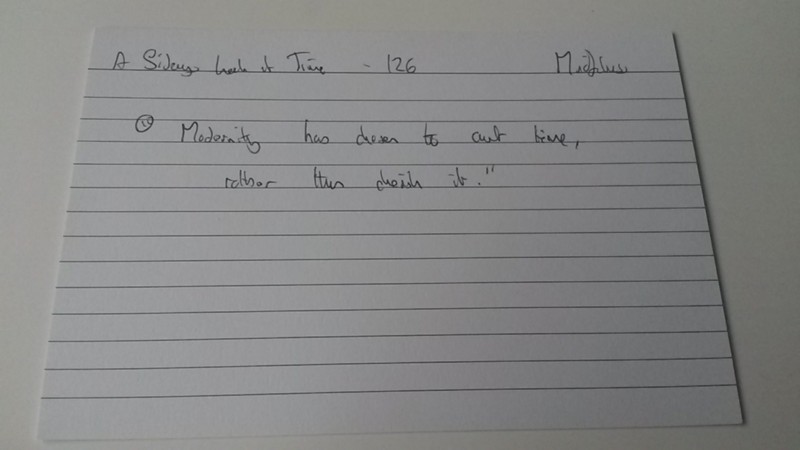 A Sideways Look at Time - 126
" Modernity has chosen to count time,
rather than cherish it."